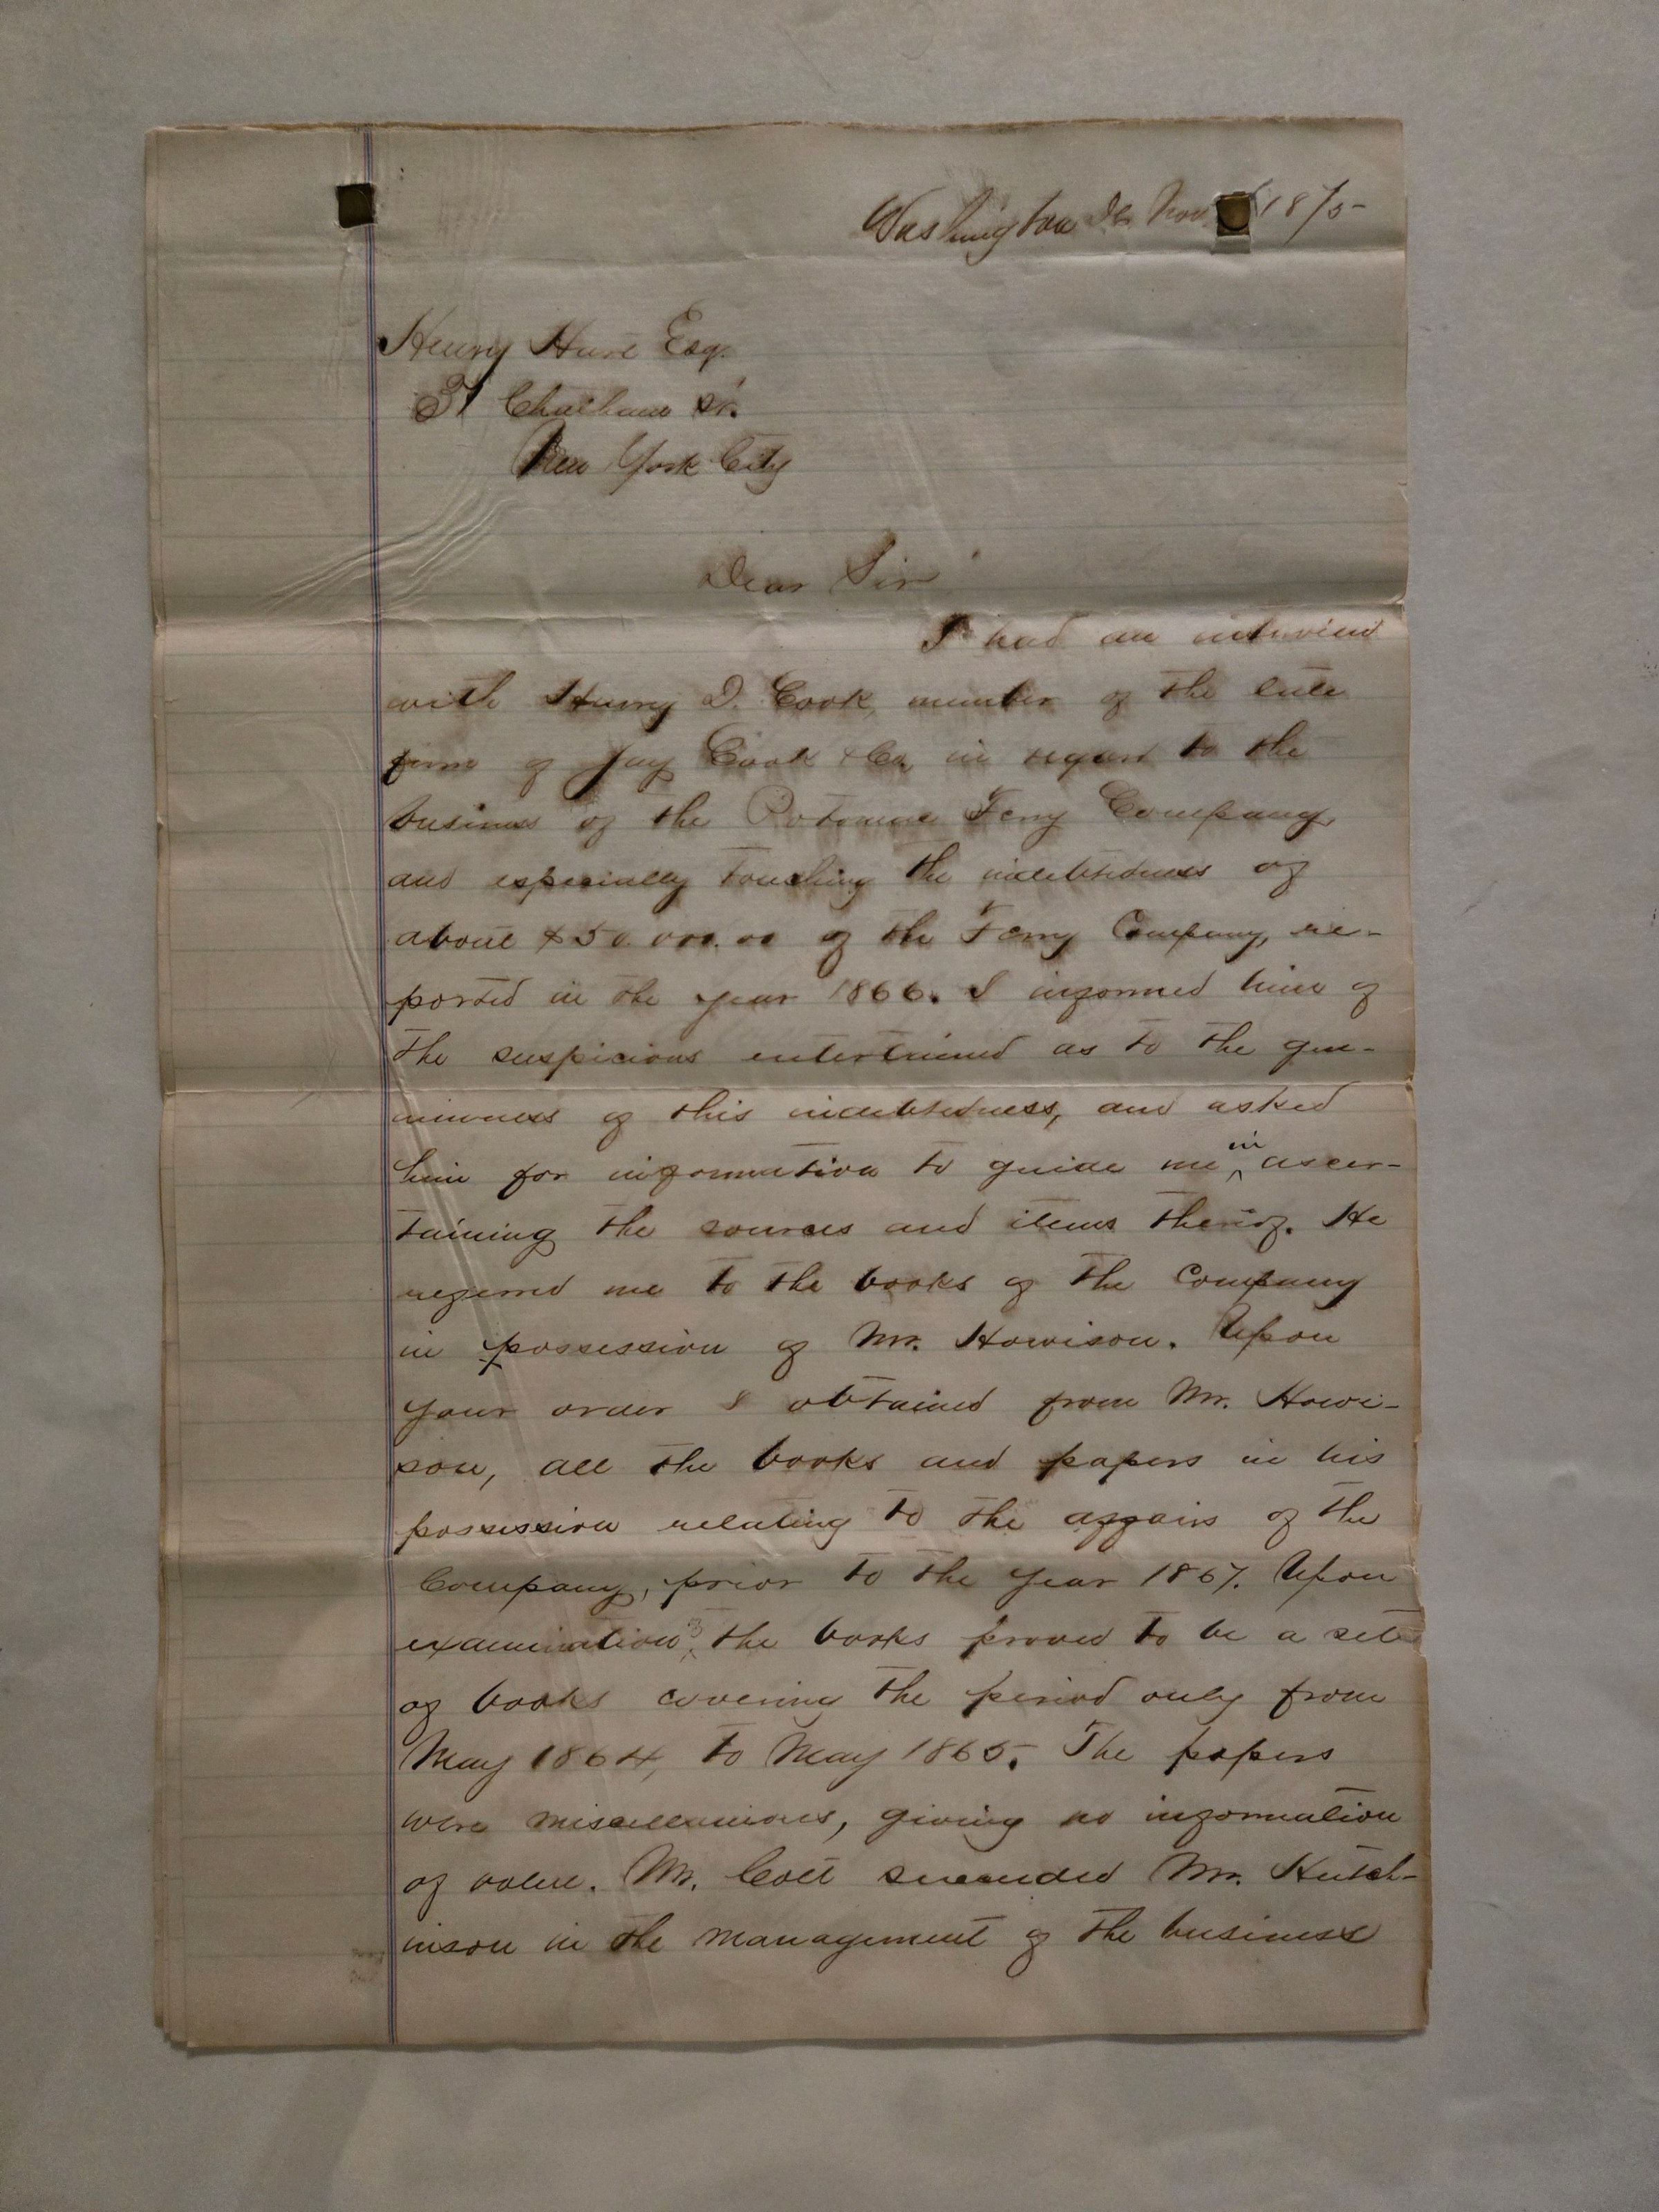 Washington DC Nov. 1875-
Henry Hurl Esq.
31 Chatham St.
New York City
Dear Sir
I had an interview
with Henry D. Cook, member of the late
firm of Jay Cook & Co, in regard to the
business of the Potomac Ferry Company,
and especially touching the indebtedness of
about $50.000.00 of the Ferry Company, re-
ported in the year 1866. I informed him of
the suspicions entertained as to the gen-
uineness of this indebtedness, and asked
him for information to guide me in ascer-
taining the sources and items thereof. He
referred me to the books of the Company
in possession of Mr. Howison. Upon
your order I obtained from Mr. Howi-
son, all the books and papers in his
possession relating to the affairs of the
Company, prior to the year 1867. Upon
examination, the books proved to be a set
of books covering the period only from
May 1864, to May 1865. The papers
were miscellanious, giving no information
of value. Mr. Colt succeeded Mr. Hutch-
inson in the management of the business